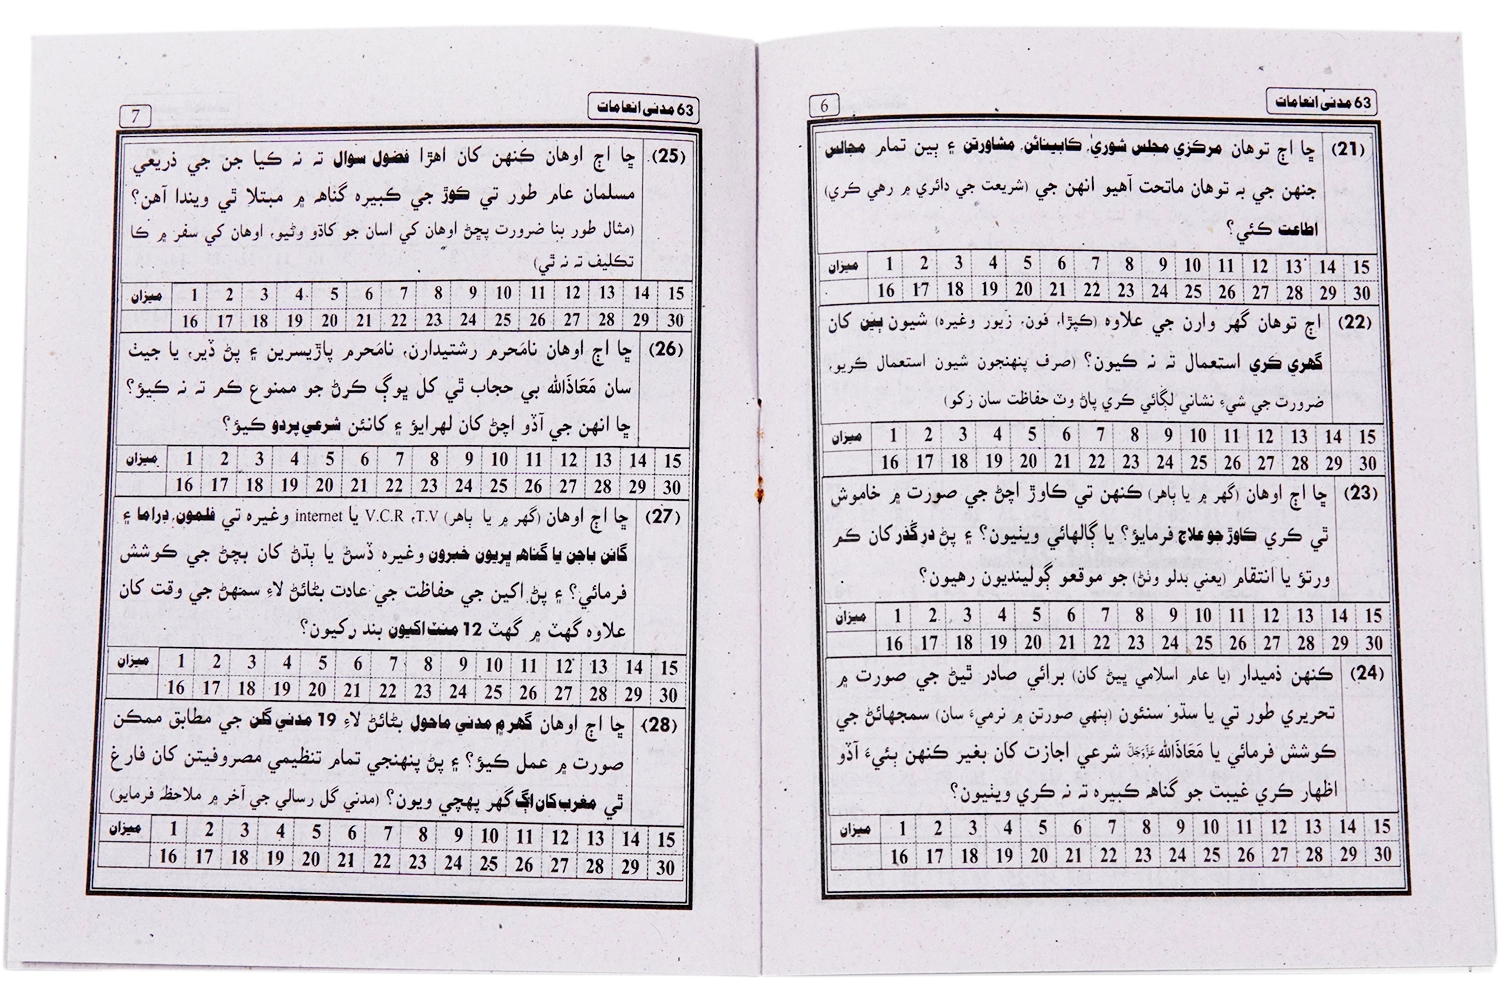 63 مدني انعامات
6
(21) ڇا اڄ توهان مرڪزي مجلس شوريٰ، ڪابينائن، مشاورتن ۽ ٻين تمام مجالس
جنهن جي به توهان ماتحت آهيو انهن جي (شريعت جي دائري ۾ رهي ڪري)
اطاعت ڪئي؟
ميزان 1 2 3 4 5 6 7 8 9 10 11 12 13 14 15
16 17 18 19 20 21 22 23 24 25 26 27 28 29 30
(22) اڄ توهان گهر وارن جي علاوه (ڪپڙا، فون، زيور وغيره) شيون ٻين کان
گهري ڪري استعمال ته نه ڪيون؟ (صرف پنهنجون شيون استعمال ڪريو،
ضرورت جي شيءِ نشاني لڳائي ڪري پاڻ وٽ حفاظت سان رکو)
ميزان 1 2 3 4 5 6 7 8 9 10 11 12 13 14 15
16 17 18 19 20 21 22 23 24 25 26 27 28 29 30
(23) ڇا اڄ اوهان (گهر ۾ يا ٻاهر) ڪنهن تي ڪاوڙ اچڻ جي صورت ۾ خاموش
ٿي ڪري ڪاوڙ جو علاج فرمايؤ؟ يا ڳالهائي ويٺيون؟ ۽ پڻ درگذر کان ڪم
ورتؤ يا انتقام (يعني بدلو وٺڻ) جو موقعو ڳولينديون رهيون؟
ميزان 1 2 3 4 5 6 7 8 9 10 11 12 13 14 15
16 17 18 19 20 21 22 23 24 25 26 27 28 29 30
(24) ڪنهن ذميدار (يا عام اسلامي ڀيڻ کان) برائي صادر ٿيڻ جي صورت ۾
تحريري طور تي يا سڌو سنئون (ٻنهي صورتن ۾ نرميءَ سان) سمجهائڻ جي
ڪوشش فرمائي يا مَعَاذَالله عَزَّوَجَلَّ شرعي اجازت کان بغير ڪنهن ٻئيءَ آڏو
اظهار ڪري غيبت جو گناهه ڪبيره ته نه ڪري ويٺيون؟
ميزان 1 2 3 4 5 6 7 8 9 10 11 12 13 14 15
16 17 18 19 20 21 22 23 24 25 26 27 28 29 30
63 مدني انعامات
7
(25) ڇا اڄ اوهان ڪنهن کان اهڙا فضول سوال ته نه ڪيا جن جي ذريعي
مسلمان عام طور تي ڪوڙ جي ڪبيره گناهه ۾ مبتلا ٿي ويندا آهن؟
(مثال طور بنا ضرورت پڇڻ اوهان کي اسان جو کاڌو وڻيو، اوهان کي سفر ۾ ڪا
تڪليف ته نه ٿي)
ميزان 1 2 3 4 5 6 7 8 9 10 11 12 13 14 15
16 17 18 19 20 21 22 23 24 25 26 27 28 29 30
(26) ڇا اڄ اوهان نامَحرم رشتيدارن، نامَحرم پاڙيسرين ۽ پڻ ڏير، يا جيٺ
سان مَعَاذَالله بي حجاب ٿي کل ڀوڳ ڪرڻ جو ممنوع ڪم ته نه ڪيؤ؟
ڇا انهن جي آڏو اچڻ کان لهرايؤ ۽ کانئن شرعي پردو ڪيؤ؟
ميزان 1 2 3 4 5 6 7 8 9 10 11 12 13 14 15
16 17 18 19 20 21 22 23 24 25 26 27 28 29 30
(27) ڇا اڄ اوهان (گهر ۾ يا ٻاهر) T.V، V.C.R يا internet وغيره تي فلمون، ڊراما ۽
گانن باجن يا گناهه ڀريون خبرون وغيره ڏسڻ يا ٻڌڻ کان بچڻ جي ڪوشش
فرمائي؟ ۽ پڻ اکين جي حفاظت جي عادت بڻائڻ لاءِ سمهڻ جي وقت کان
علاوه گهٽ ۾ گهٽ 12 منٽ اکيون بند رکيون؟
ميزان 1 2 3 4 5 6 7 8 9 10 11 12 13 14 15
16 17 18 19 20 21 22 23 24 25 26 27 28 29 30
(28) ڇا اڄ اوهان گهر ۾ مدني ماحول بڻائڻ لاءِ 19 مدني گلن جي مطابق ممڪن
صورت ۾ عمل ڪيؤ؟ ۽ پڻ پنهنجي تمام تنظيمي مصروفيتن کان فارغ
ٿي مغرب کان اڳ گهر پهچي ويون؟ (مدني گل رسالي جي آخر ۾ ملاحظه فرمايو)
ميزان 1 2 3 4 5 6 7 8 9 10 11 12 13 14 15
16 17 18 19 20 21 22 23 24 25 26 27 28 29 30